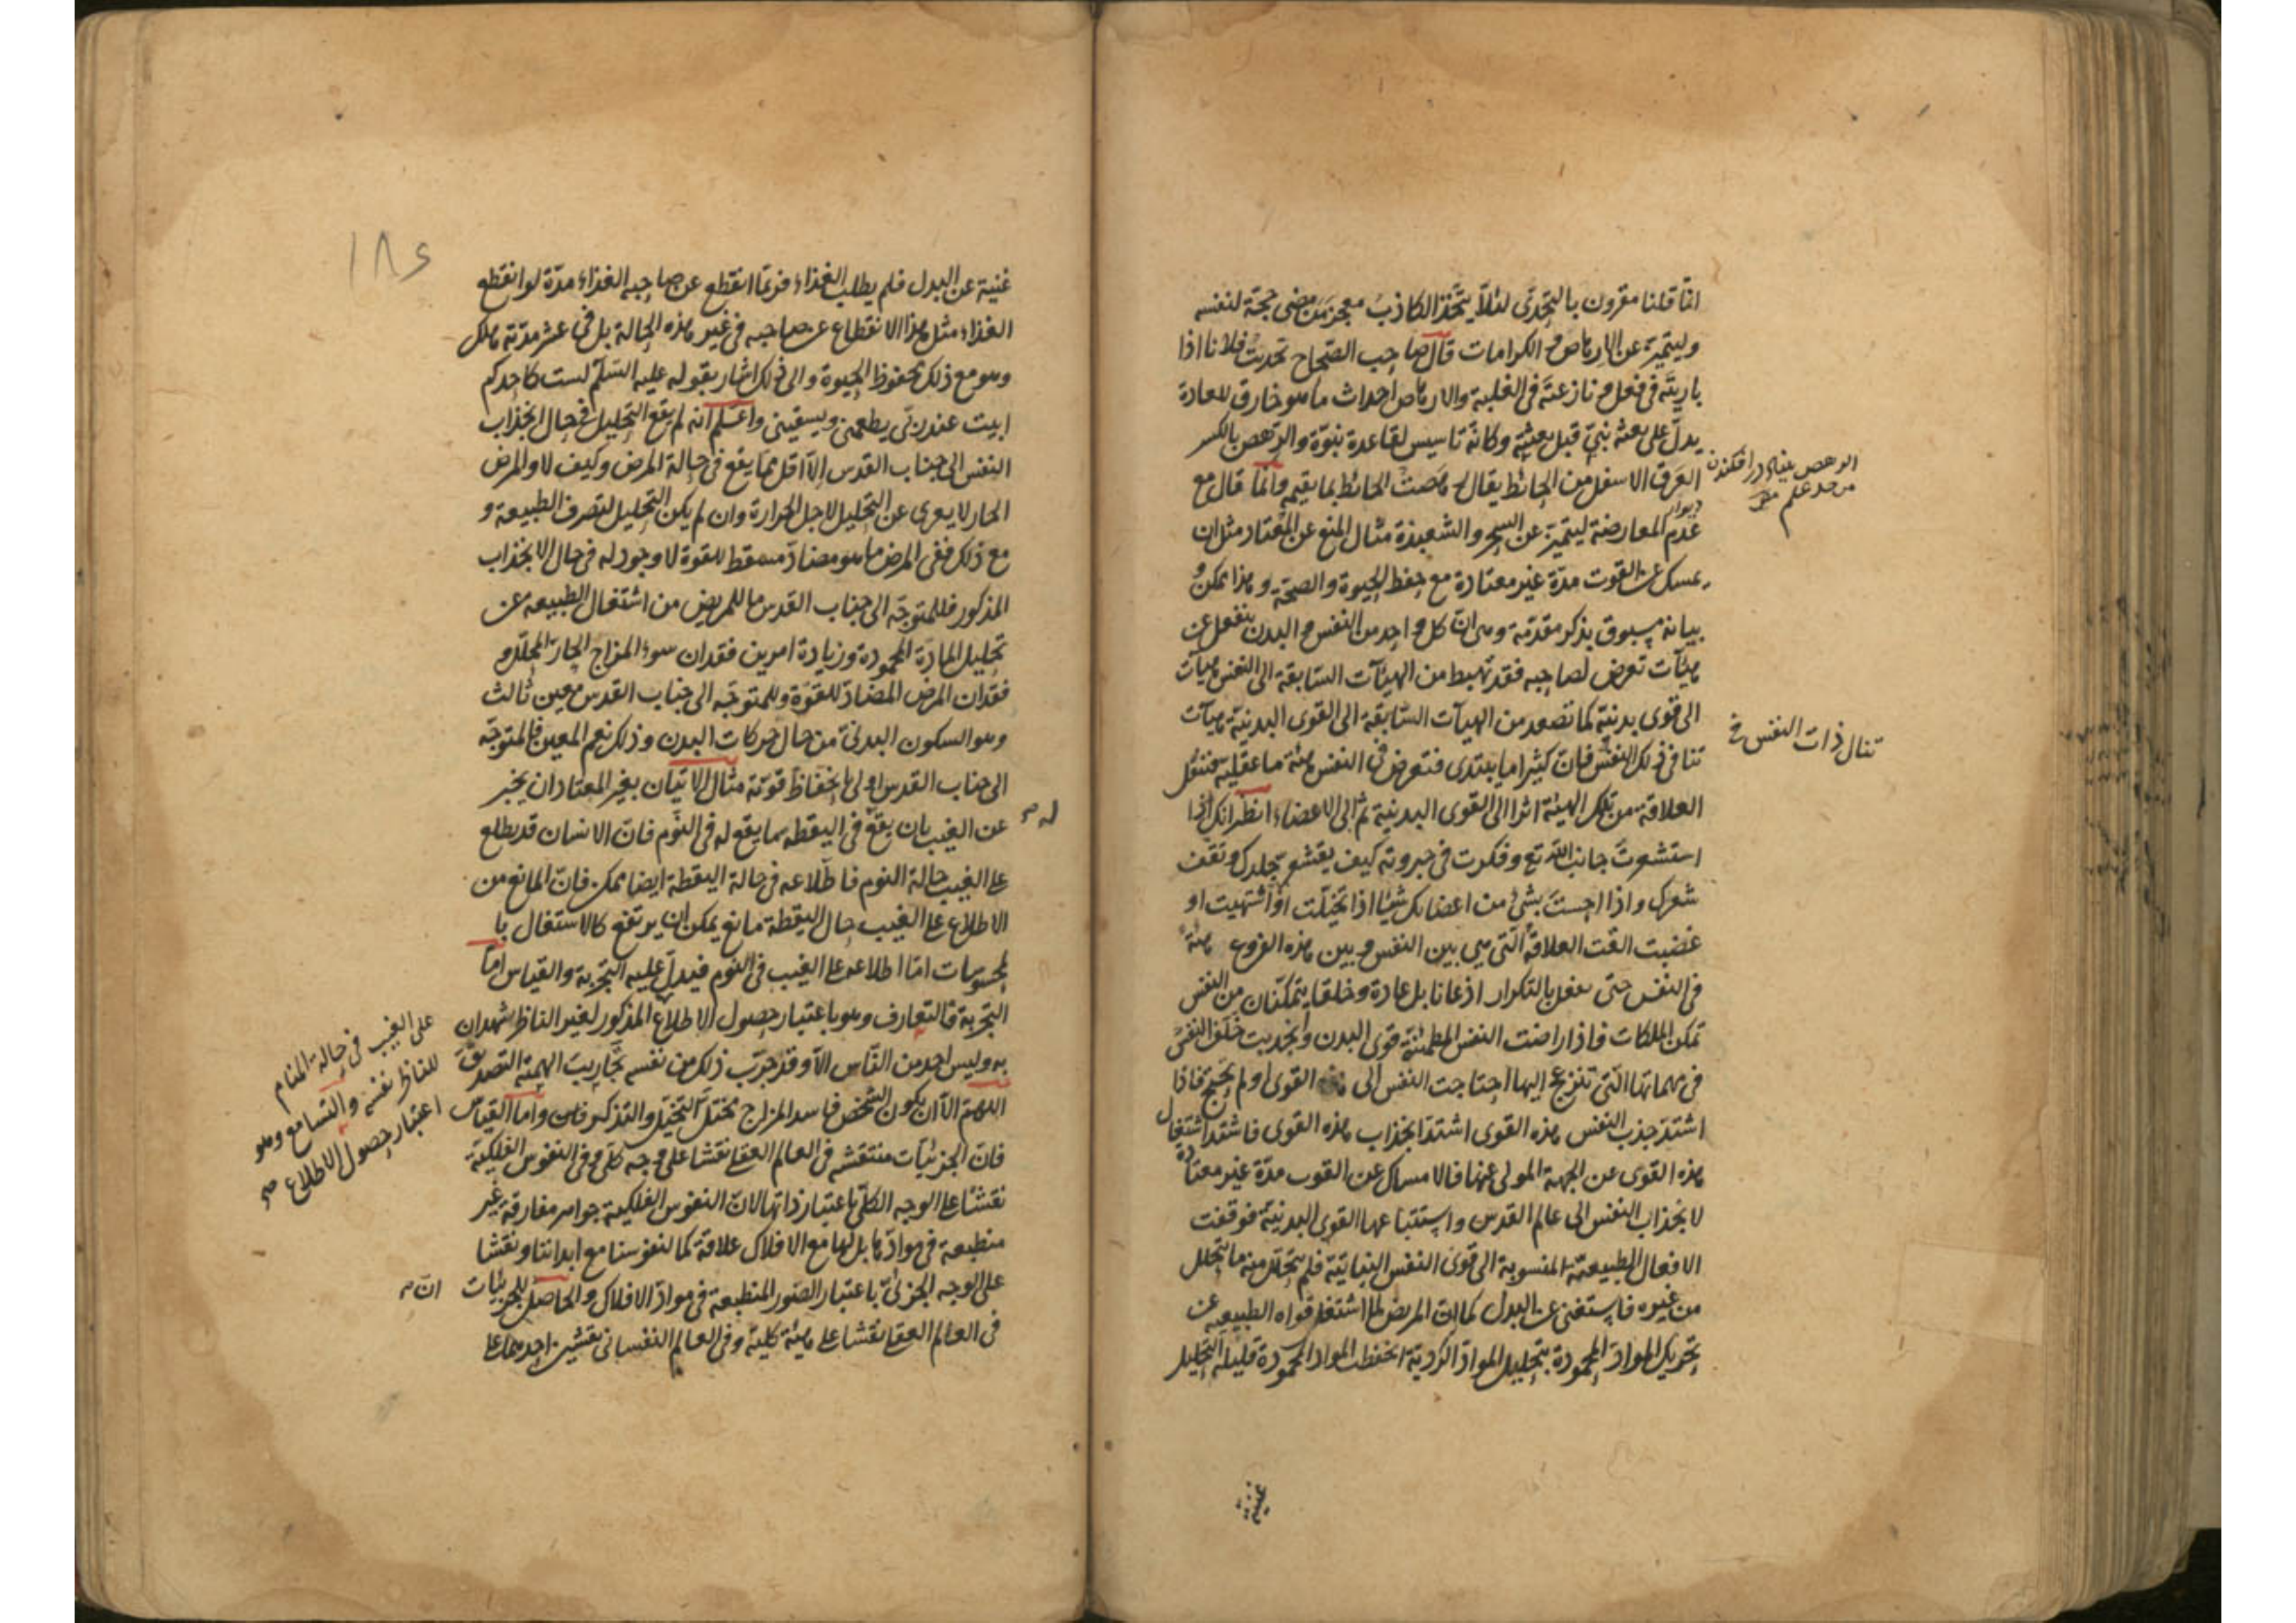 انّا قلنا مقرون بالتحدّى لئلاّ يتّخذ الكاذبُ معجز مَن مضى حجّة لنفسه
وليتميّز عن الارهاص و الكرامات قال صاحب الصّحاح تحديتُ فلانا اذا
باريتَه فى فعل و نازعتَه فى الغلبة والارهاص احداث ما هو خارق للعادة
يدلّ على بعثة نبىّ قبل بعثته وكانّه تاسيس لقاعدة نبوّة والرّهص بالكسر
العَرَق الاسفل من الحائط يقال رهصتُ الحائط بما يقيم وانّما قال مع
عدم المعارضة ليتميّز عن السحر والشعبذة مثال المنع عن المعتاد مثل ان
يمسك عن القوت مدّة غير معتادة مع حفظ الحيوة والصحّة وهذا ممكن و
بيانه مسبوق بذكر مقدّمة وهى انّ كل واحد من النفس و البدن ينفعل عن
هيئآت تعرض لصاحبه فقد تهبط من الهيئآت السّابقة الى النفس هيآت
الى قوى بدنيّة كما تصعد من الهيآت السّابقة الى القوى البدنيّة هيآت
تنافى ذلك النفس فانّ كثيرا ما يبتدى فتعرض فى النفس هيئة ما عقلية فتنقل
العلاقة من تلك الهيئة اثرا الى القوى البدنية ثم الى الاعضاء انظر انك اذا
استشعرتَ جانب اللّه تع وفكرت فى جبروته كيف يقشعر جلدك و تقف
شعرك واذا احسستَ بشئ من اعضائك شيئا اذا تخيّلت او اشتهيت او
غضبت القت العلاقة الّتى هى بين النفس و بين هذه الفروع هيئة
فى النفس حتى تفعل بالتكرار اذعانا بل عادة وخلقا يتمكّنان من النفس
تمكن الملكات فاذا راضت النفس المطمئنّة قوى البدن وانجذبت خلف النفس
فى مهماتها الّتى تنزعج اليها احتاجت النفس الى هذه القوى او لم تحتج فاذا
اشتدّ جذب النفس هذه القوى اشتدّ انجذاب هذه القوى فاشتدّ اشتغال
هذه القوى عن الجهة المولى عنها فالامساك عن القوت مدّة غير معتادة
لانجذاب النفس الى عالم القدس واستتباعها القوى البدنيّة فوقفت
الافعال الطبيعيّة المنسوبة الى قوى النفس النباتيّة فلم يتحلّل منه ما يتحلل
من غيره فاستغنى عن البدل كما انّ المريض لما اشتغل قواه الطبيعيه عن
تحريك الموادّ المحمودة بتحليل الموادّ الرديّة انحفظت المواد المحمودة قليلة التحليل
الرهص بناء در افكندن
ديوار
تنال ذات النفس خ
غنية
١٨٤
غنية عن البدل فلم يطلب الغذاء فربّما انقطع عن صاحبه الغذاء مدّة لو انقطع
الغذاء مثل هذا الانقطاع عن صاحبه فى غير هذه الحالة بل فى عشر مدّته هلك
وهو مع ذلك محفوظ الحيوة والى ذلك اشار بقوله عليه السّلم لست كاحدكم
ابيت عند ربّى يطعمنى ويسقينى واعلم انه لم يقع التحليل فى حال انجذاب
النفس الى جناب القدس الّا اقل ممّا يقع فى حالة المرض وكيف لا والمرض
الحار لا يعرى عن التحليل لاجل الحرارة وان لم يكن التحليل لتصرف الطبيعة و
مع ذلك ففى المرض ما هو مضادّ مسقط للقوة لا وجود له فى حال الانجذاب
المذكور فللمتوجّه الى جناب القدس ما للمريض من اشتغال الطبيعه عن
تحليل المادّة المحمودة وزيادة امرين فقدان سوء المزاج الحارّ المحلّل و
فقدان المرض المضادّ للقوّة وللمتوجّه الى جناب القدس معين ثالث
وهو السكون البدنىّ من حال حركات البدن وذلك نعم المعين فالمتوجّه
الى جناب القدس اولى بانحفاظ قوّته مثال الاتيان بغير المعتاد ان يخبر
عن الغيب بان يقع فى اليقظه ما يقع له فى النّوم فانّ الانسان قد يطلع
على الغيب حالة النوم فاطّلاعه فى حالة اليقظة ايضا ممكن فانّ المانع من
الاطلاع على الغيب حال اليقظة مانع يمكن ان يرتفع كالاشتغال با
لمحسوسات امّا اطلاعه على الغيب فى النوم فيدلّ عليه التجربة والقياس امّا
التجربة فالتعارف وهو باعتبار حصول الاطلاع المذكور لغير الناظر شهدان
به وليس احد من النّاس الّا وقد جرّب ذلك من نفسه تجاريب الهمته التصديق
اللهمّ الّا ان يكون الشخص فاسد المزاج مختلّ التخيّل والتذكر وامّا القياس
فانّ الجزئيّات منتقشة فى العالم العقلى نقشا على وجه كلّى وفى النفوس الفلكيّة
نقشًا على الوجه الكلّى باعتبار ذاتها لانّ النفوس الفلكية جواهر مفارقة غير
منطبعة فى موادّها بل لها مع الافلاك علاقة كما لنفوسنا مع ابداننا ونقشا
على الوجه الجزئىّ باعتبار الصّور المنطبعة فى موادّ الافلاك والحاصل للجزئيات
فى العالم العقلى نقشا على هيئة كلية وفى العالم النفسانى نقشين احدهما على
له صح
على الغيب فى حالة المنام
للناظر نفسه والتسامع وهو
اعتبار حصول الاطلاع صح
انّ صح